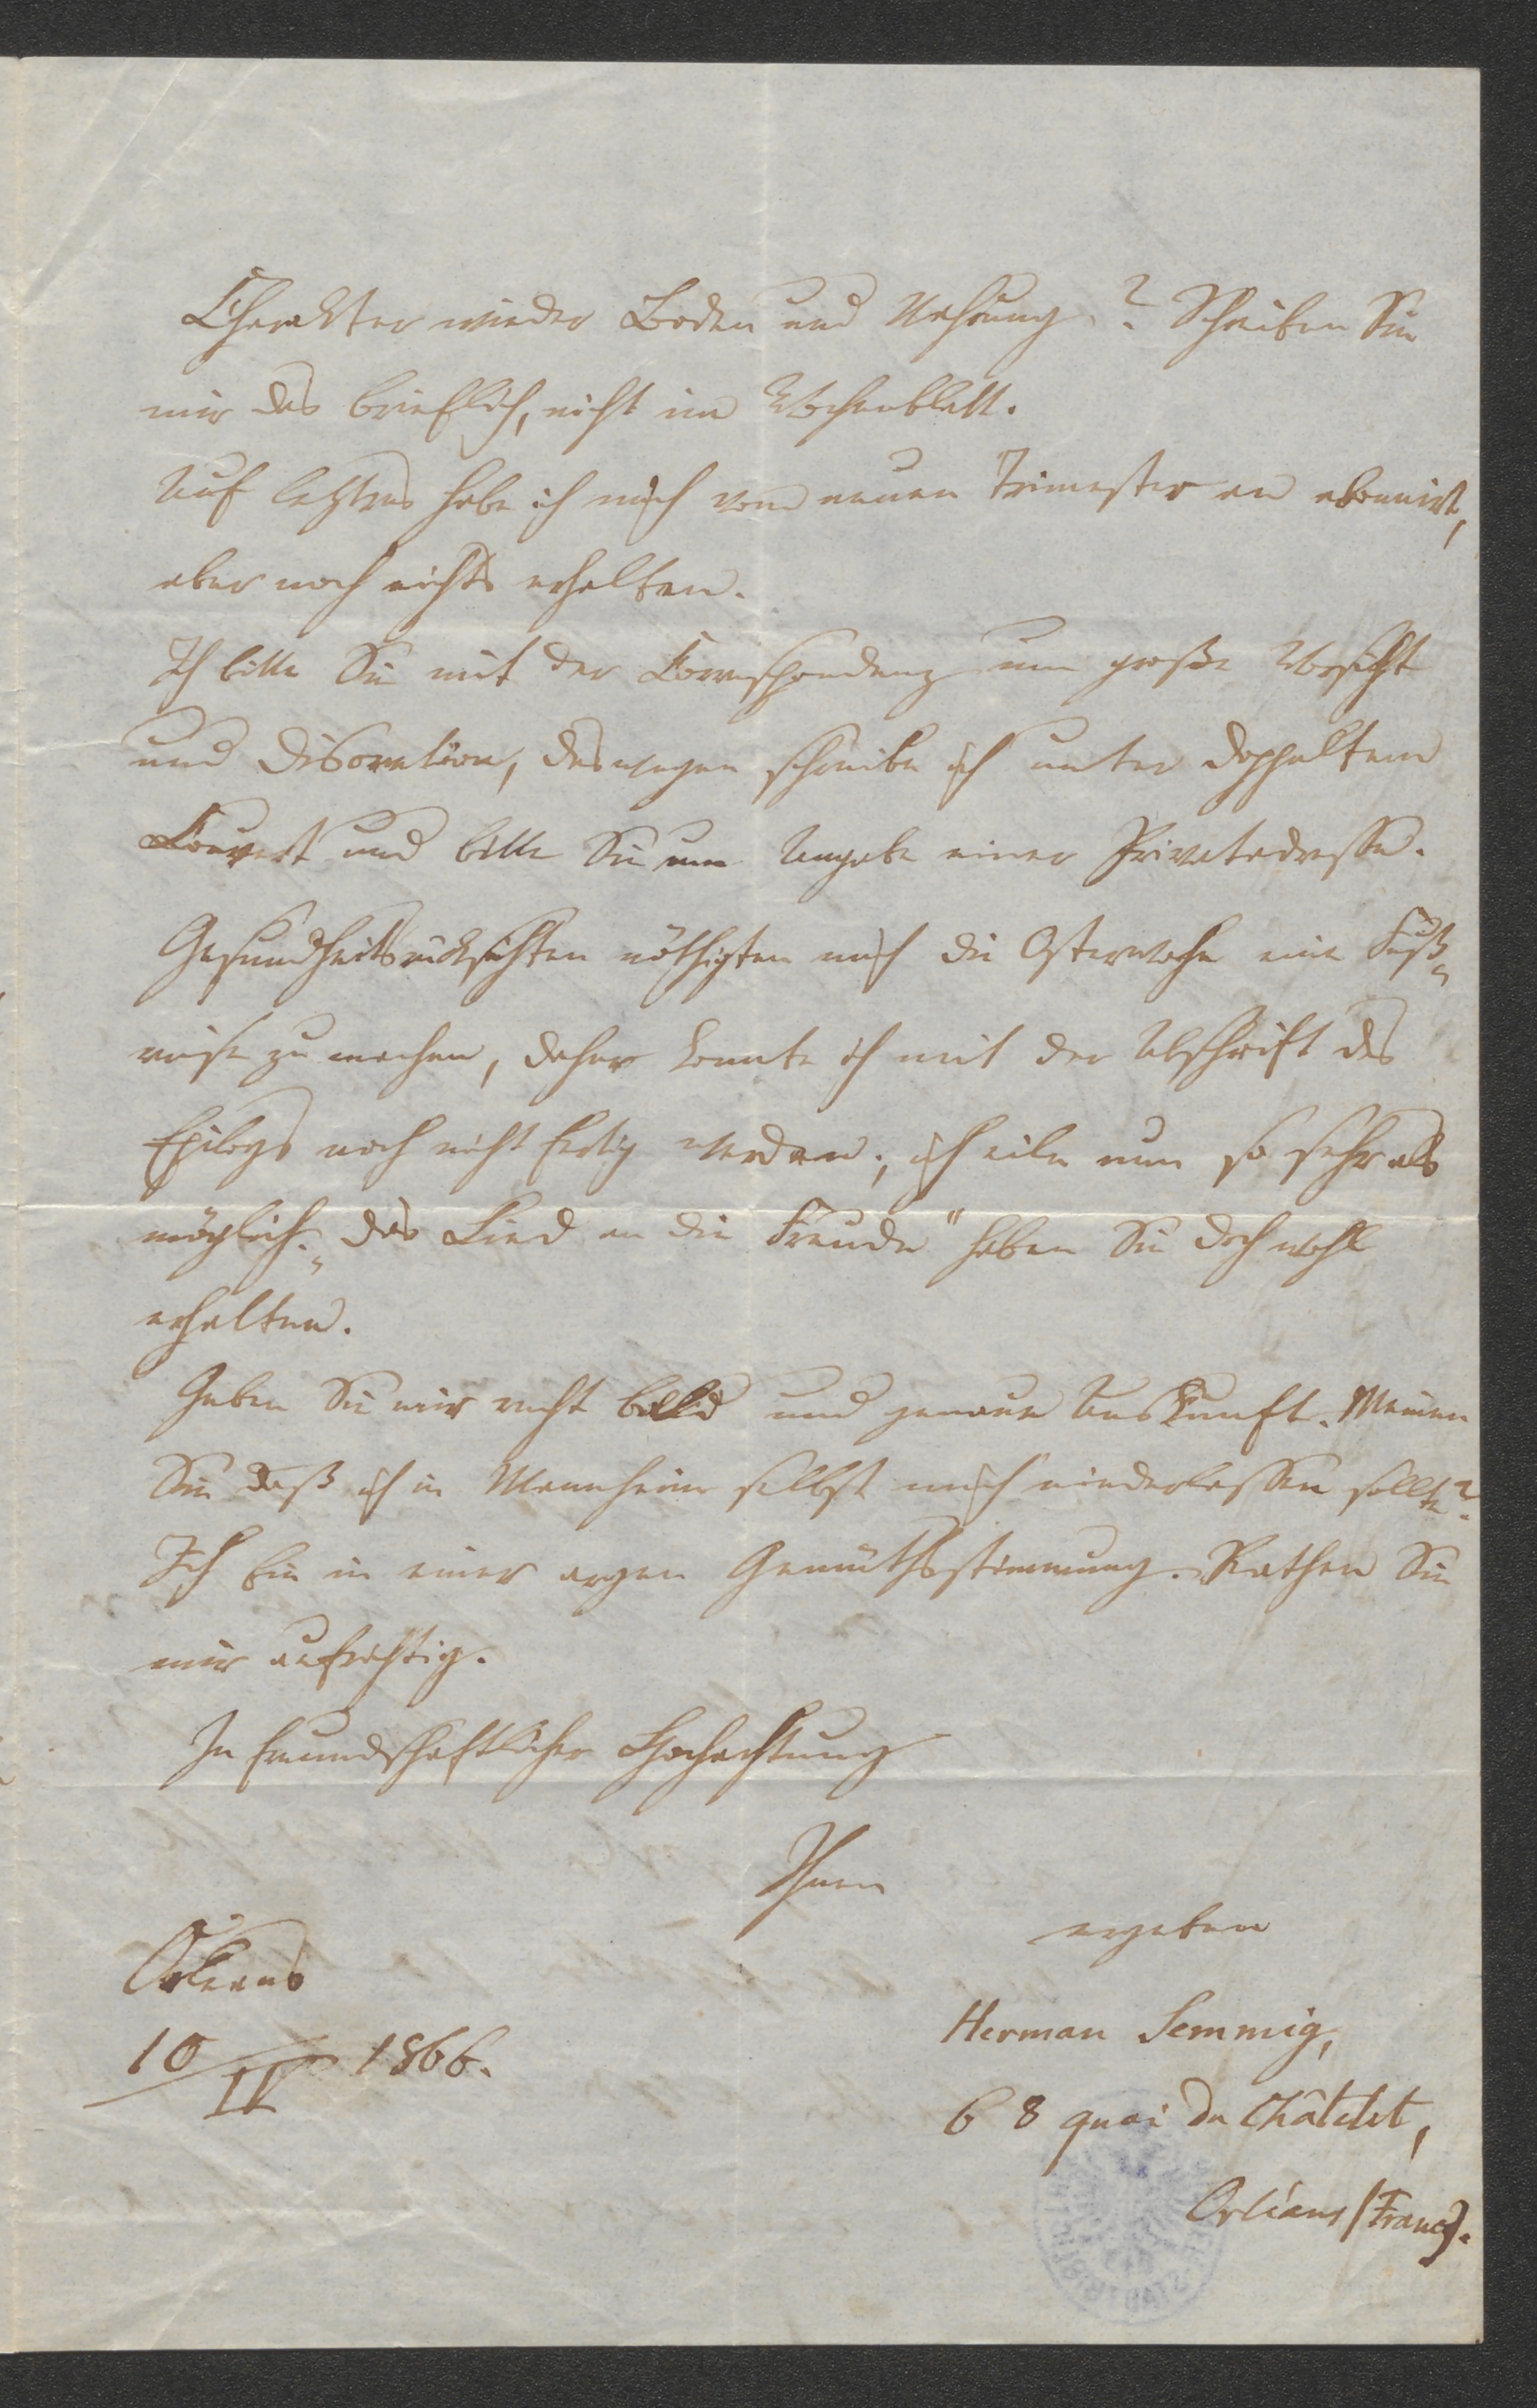 Charakter wieder Boden und Nahrung? Schreiben Sie
mir das brieflich, nicht im Wochenblatt.
Auf letztres habe ich mich vom neuen Trimester an abonnirt,
aber noch nichts erhalten.
Ich bitte Sie mit der Correspondenz um große Vorsicht
und Discretion, deswegen schreibe ich unter doppeltem
Couvert und bitte Sie um Angabe einer Privatadresse.
Gesundheitsrücksichten nöthigten mich die Osterwoche eine Fuß-
reise zu machen, daher konnte ich mit der Abschrift des
Epilogs noch nicht fertig werden; ich eile nun so sehr als
möglich. „das Lied an die Freude" haben Sie doch wohl
erhalten.
Geben Sie mir recht bald und genaue Auskunft. Meinen
Sie daß ich in Mannheim selbst mich niederlassen sollte?
Ich bin in einer argen Gemüthsstimmung. Rathen Sie
mir aufrichtig.
In freundschaftlicher Hochachtung
Ihnen
ergeben
Orleans
Herman Semmig,
10/IV 1866.
68 quai du Châtelet,
Orléans (France).